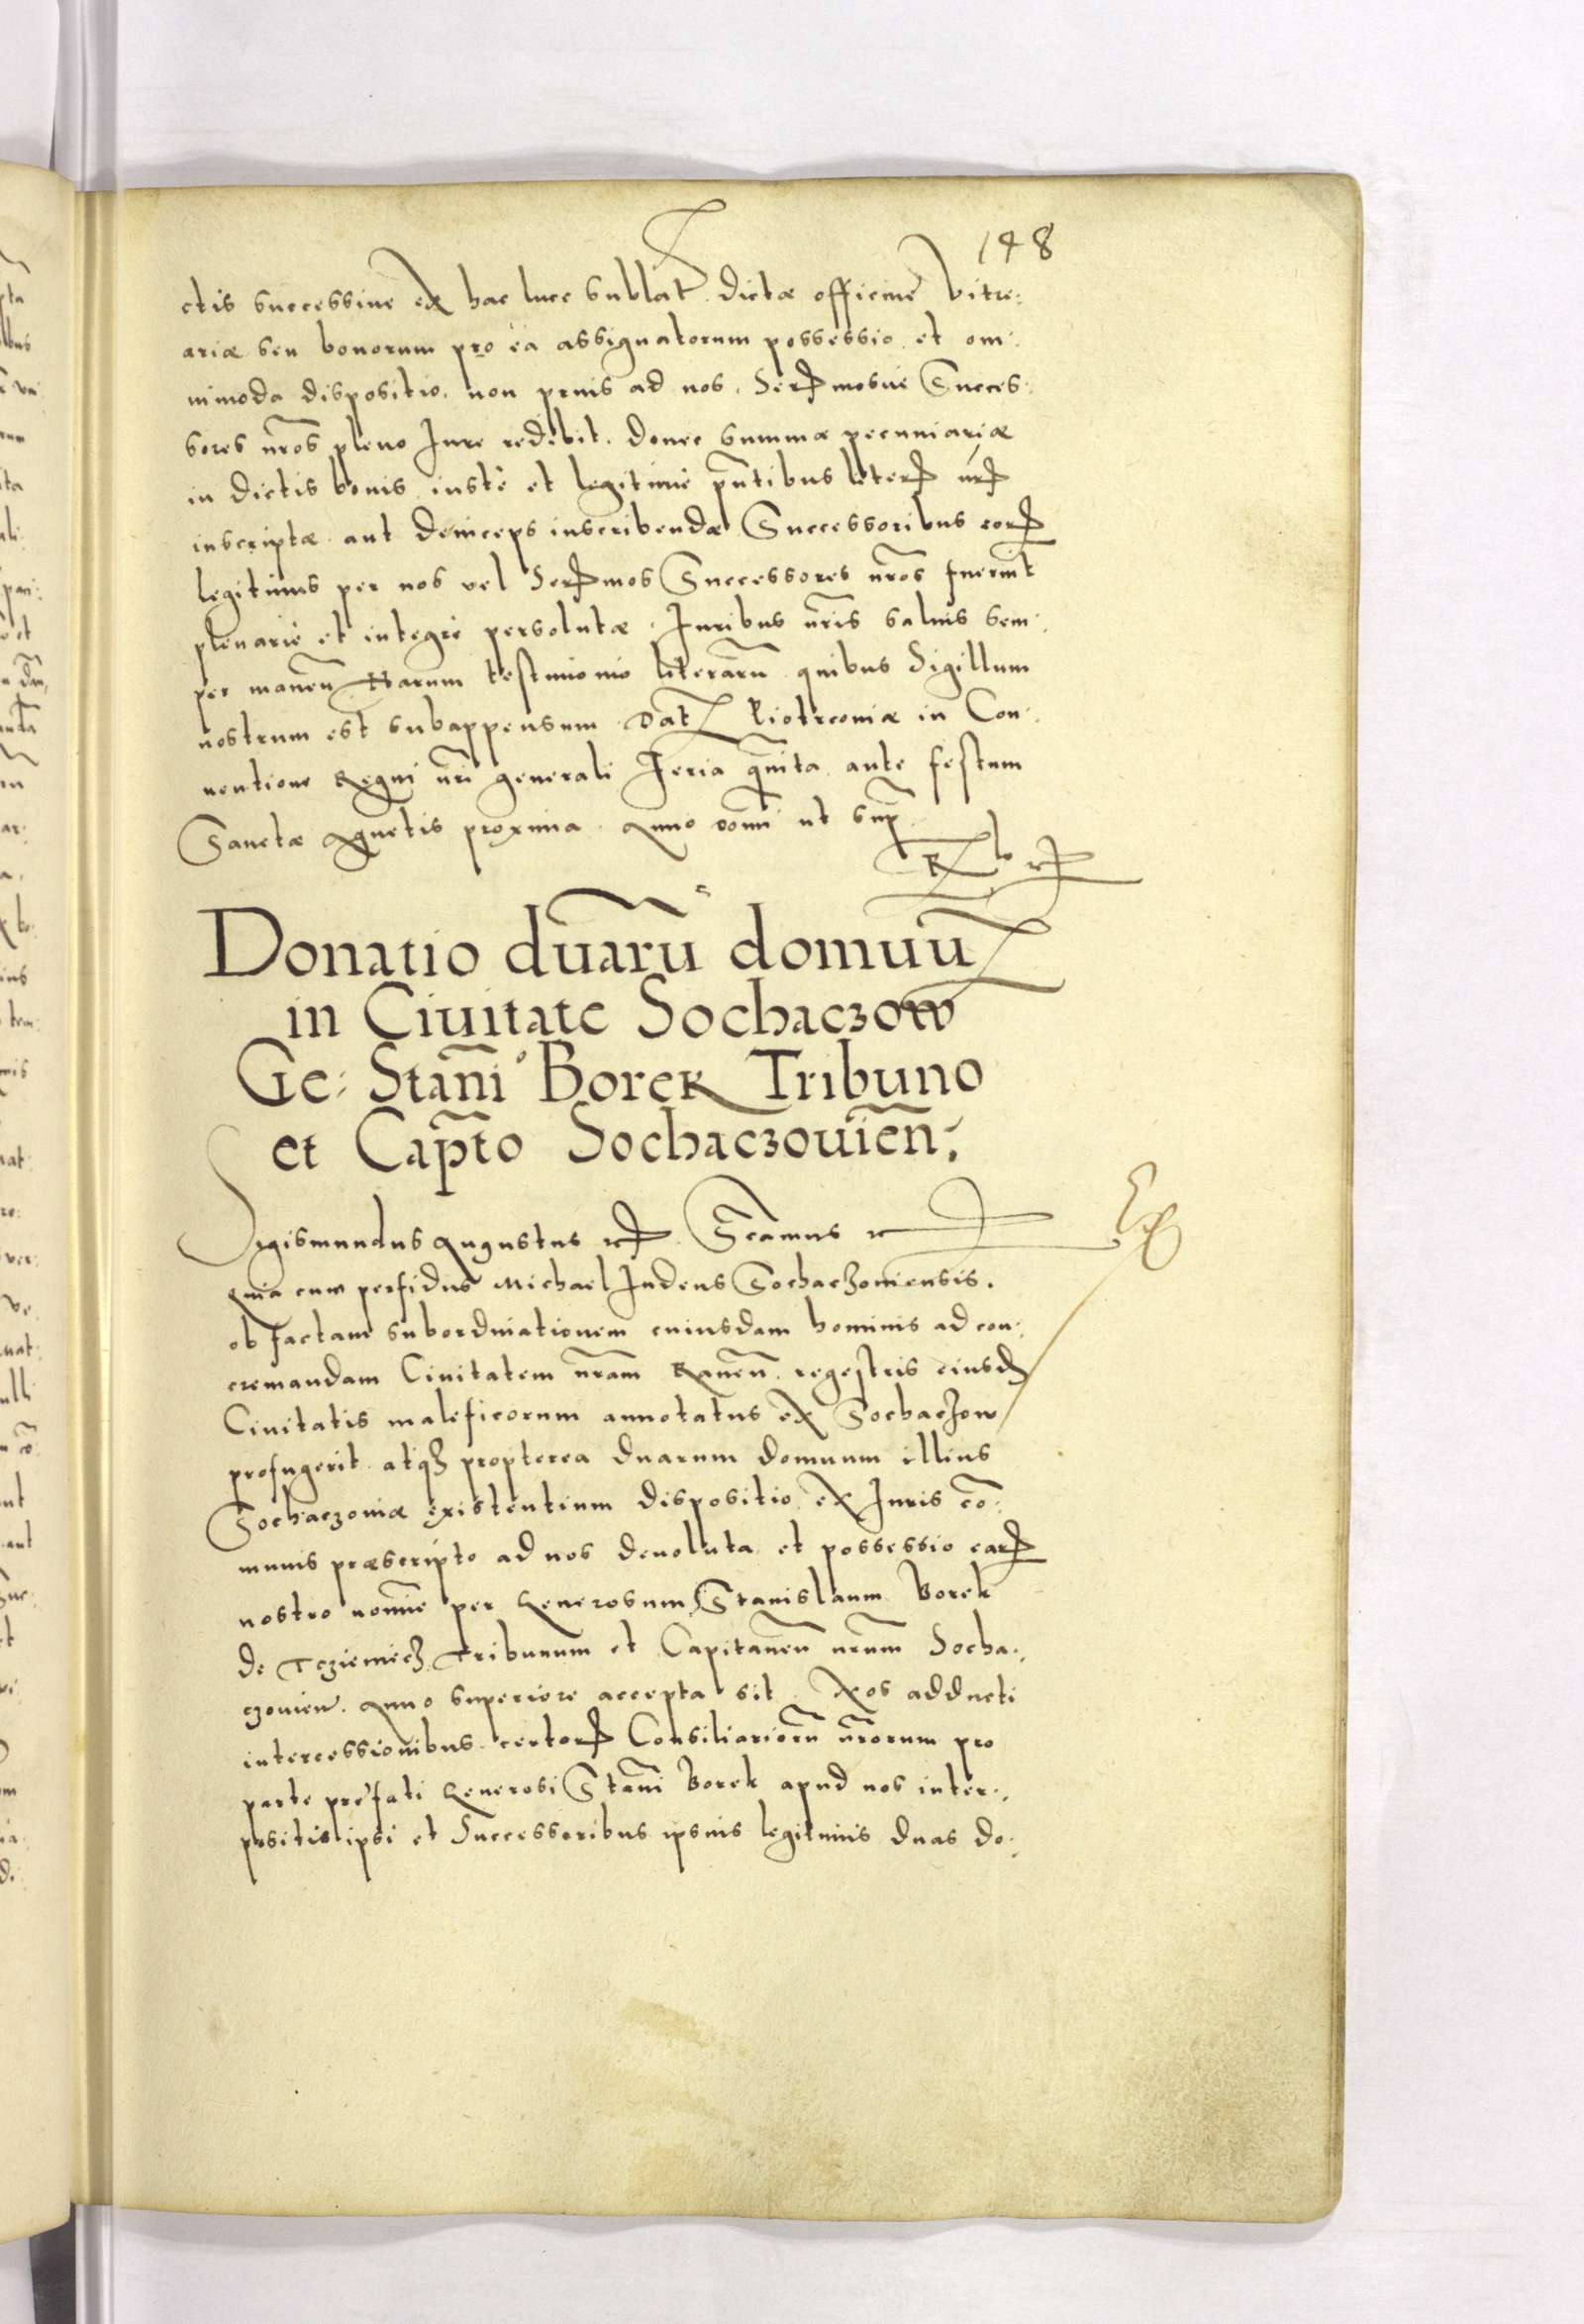 148
ctis successiue ex hac luce sublat. dictæ officinę vitre:
ariæ seu bonorum pro ea assignatorum possessio et om:
nimoda dispositio, non prius ad nos, Ser mosue Succes:
sores nr̃os pleno Jure redibit, donec summæ pecuniariæ
in dictis bonis iustè et legitimè pn̄tibus liter nr̃
inscriptæ aut deinceps inscribendæ Successoribus eor
legitimis per nos vel Ser mos Successores nr̃os fuerint
plenariè et integrè persolutæ. Juribus nr̃is saluis sem:
per manen̄ Harum testimonio literarū quibus Sigillum
nostrum est subappensum. Dat Piotrcouiæ in Con:
uentione Regni nr̃i generali Feria quīta ante festum
Sanctæ Agnetis proxima. Anno domī ut sup̄.
Donatio duarū domuū
in Ciuitate Sochaczow
Ge: Stan̄i Borek Tribuno
et Cap̄to Sochaczouien̄:
Sigismundus Augustus etc. Significamus etc.
Quia cum perfidus Michael Judeus Sochaczouiensis.
ob factam subordinationem cuiusdam hominis ad con:
cremandam Ciuitatem nr̃am Rauen̄. regestris eiusd
Ciuitatis maleficorum annotatus ex Sochaczow
profugerit atqꝫ propterea duarum domuum illius
Sochaczouiæ existentium dispositio ex Juris cō:
munis præscripto ad nos deuoluta et possessio ear
nostro nomīe per Generosum Stanislaum Borek
de Trzieniecz Tribunum et Capitaneū nr̃um Socha:
czouien̄. Anno superiore accepta sit. Nos adducti
intercessionibus certor Consiliariorū nr̃orum pro
parte præfati Generosi Stan̄i Borek apud nos inter:
positis ipsi et Successoribus ipsius legitimis duas do: